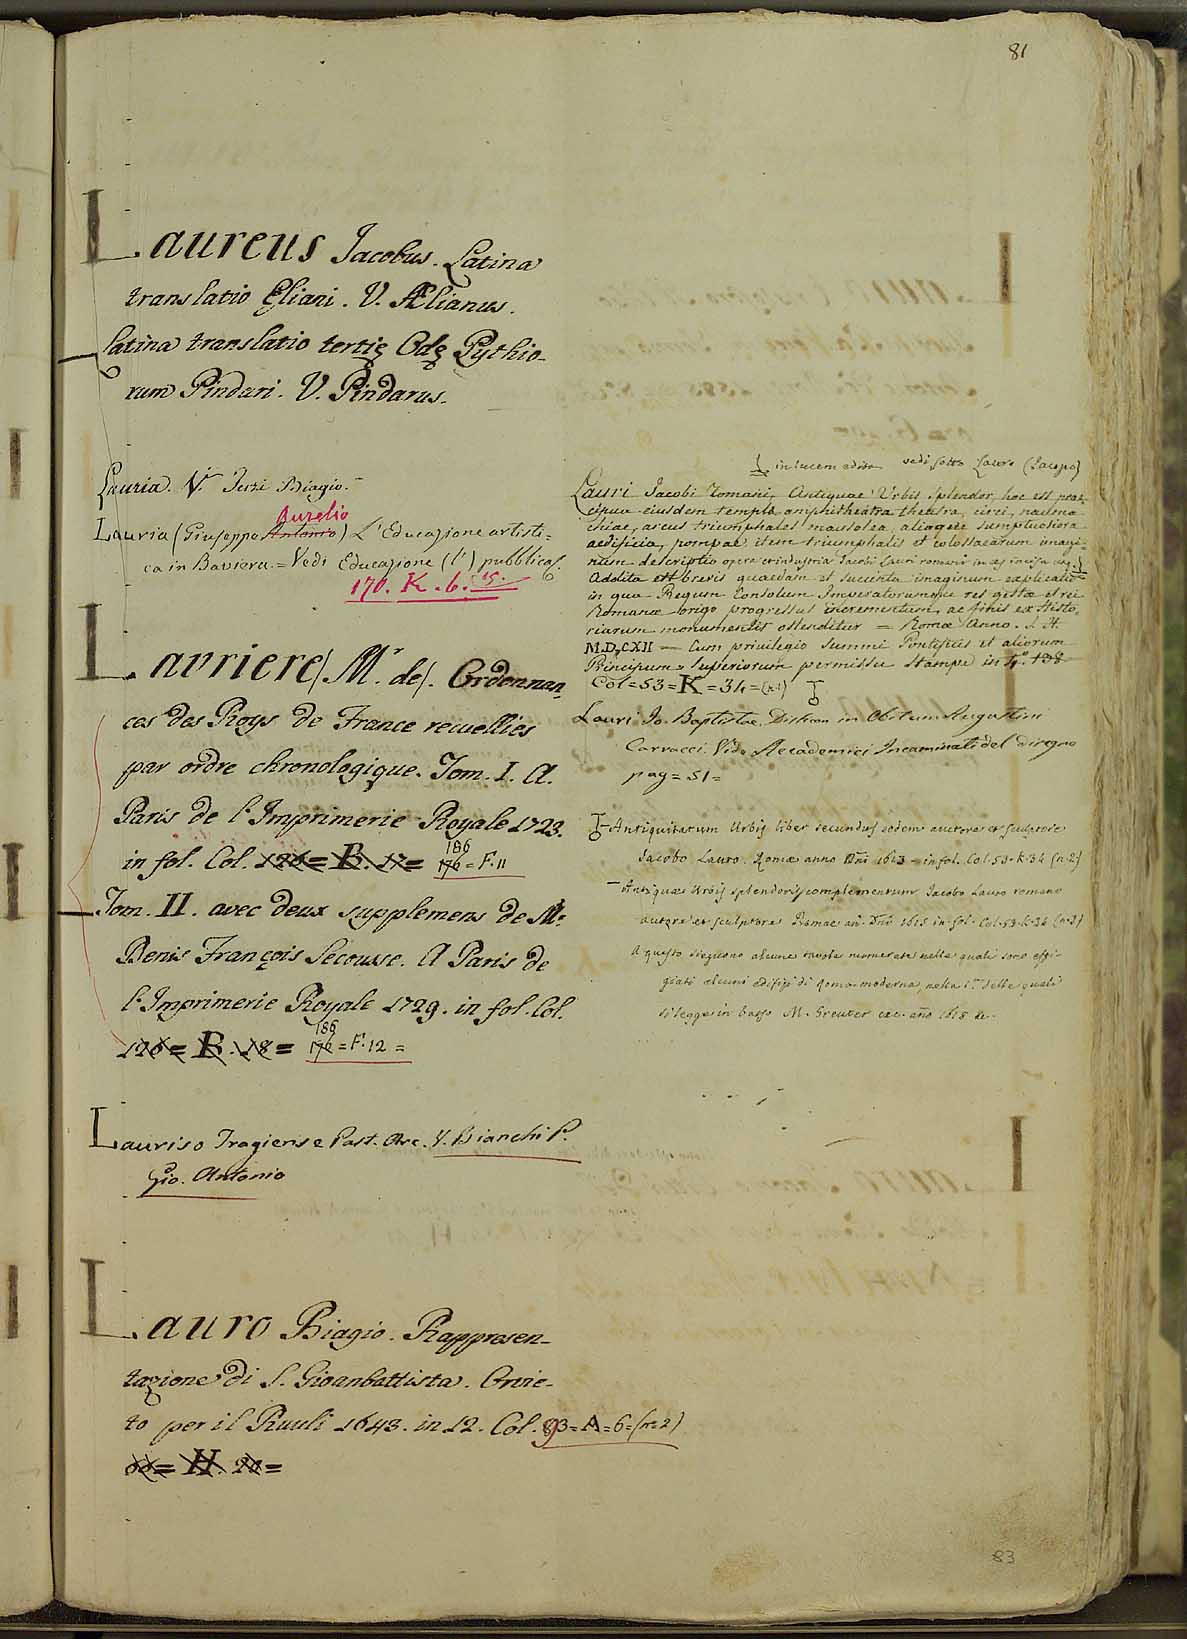 81
Laureus Jacobus. Latina
translatio Eliani. V. Ælianus.
Latina translatio tertię Odę Pythio-
rum Pindari. V. Pindarus.
Lauria. V. Terzi Biagio.
Aurelio
Lauria (Giuseppe Antonio) L'Educazione artisti=
ca in Baviera = Vedi Educazione (l') pubblica &.
170. K. 6. 15.
Lavriere (Mr. de). Ordonnan-
ces des Roys de France recuellies
par ordre chronologique. Tom. I. A
Paris de l'Imprimerie Royale 1723.
186
in fol. Col. 126 = B. 17 = 176 = F. 11
Tom. II. avec deux supplemens de Mr.
Denis François Secousse. A Paris de
l'Imprimerie Royale 1729. in fol. Col.
186
126 = B. 18 = 176 = F. 12 =
Lauriso Tragiense Past. Arc. V. Bianchi P.
Gio. Antonio
Lauro Biagio. Rappresen-
tazione di S. Gioanbattista. Orvie-
to per il Ruuli 1643. in 12. Col. 93 = A = 6 = (n. 2)
= H. 20 =
in lucem edita vedi sotto Lauro (Jacopo)
Lauri Jacobi Romani, Antiquae Urbis Splendor, hoc est prae-
cipua eiusdem templa amphitheatra theatra, circi, nauma-
chiae, arcus triumphales mausolea, aliaque sumptuosiora
aedificia, pompae item triumphalis et colossaearum imagi-
num descriptio opera et industria Jacobi Lauri romani in aes incisa
Addita est brevis quaedam et succinta imaginum explicatio
in qua Regum Consolum Imperatorumque res gestae et rei
Romanae origo progressus incrementum, ac finis ex Histo-
riarum monumentis ostenditur = Romae Anno. S. H.
M.D.CXII — Cum privilegio Summi Pontificis et aliorum
Principum Superiorum permissu Stampe in 4º. 138
Col = 53 = K = 34 = (n. 1)
Lauri Jo. Baptistae. Distican in Obitum Augustini
Carracci. Vid. Accademici Incaminati del disegno
pag = 51 =
Antiquitatum Urbis liber secundus eodem auctore et sculptore
Jacobo Lauro. Romae anno Dni 1613 - in fol. Col. 53. K. 34 (n. 2)
Antiquae Urbis splendoris complementum Jacobo Lauro romano
autore et sculptore Romae an. Dni 1615 in fol. Col. 53. K. 34 (n. 3)
A questo sieguono alcune tavole numerate nelle quali sono effi-
giati alcuni edifizj di Roma moderna, nella 1.ma delle quali
si legge in basso M. Greuter exc. año 1618 &.
83